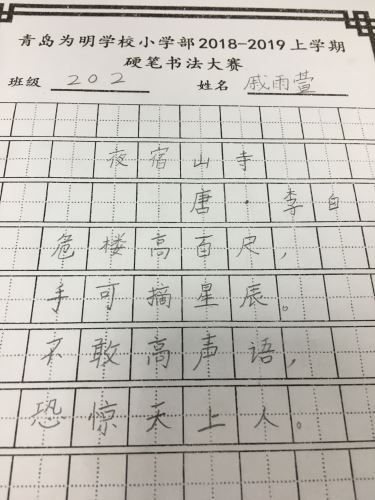 青岛为明学校小学部2018-2019上学期
硬笔书法大赛
班级 202 姓名 戚雨萱
夜宿山寺
唐·李白
危楼高百尺，
手可摘星辰。
不敢高声语，
恐惊天上人。